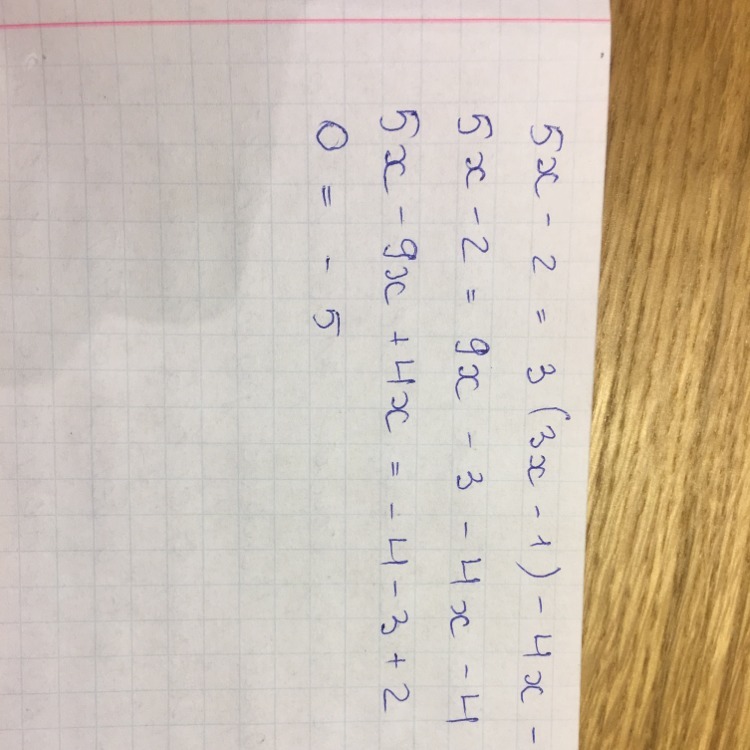 5x - 2 = 3 (3x - 1) - 4x -
5x - 2 = 9x - 3 - 4x - 4
5x - 9x + 4x = - 4 - 3 + 2
0 = - 5